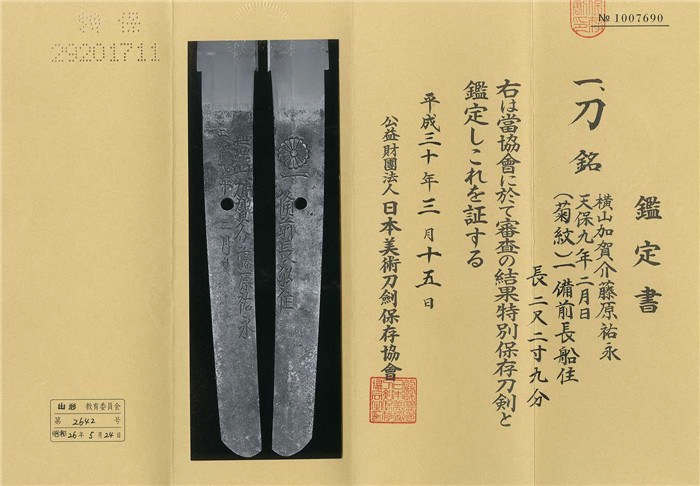 № 1007690
鑑定書
一、刀 銘
横山加賀介藤原祐永
天保九年二月日
（菊紋）一 備前長船住
長 二尺二寸九分
右は當協會に於て審査の結果特別保存刀剣と
鑑定しこれを証する
平成三十年三月十五日
公益財團法人 日本美術刀劍保存協會
特保
29201711
山形 教育委員会
第 2642 号
昭和 26年 5月 24日
一備前長船住
横山加賀介藤原祐永